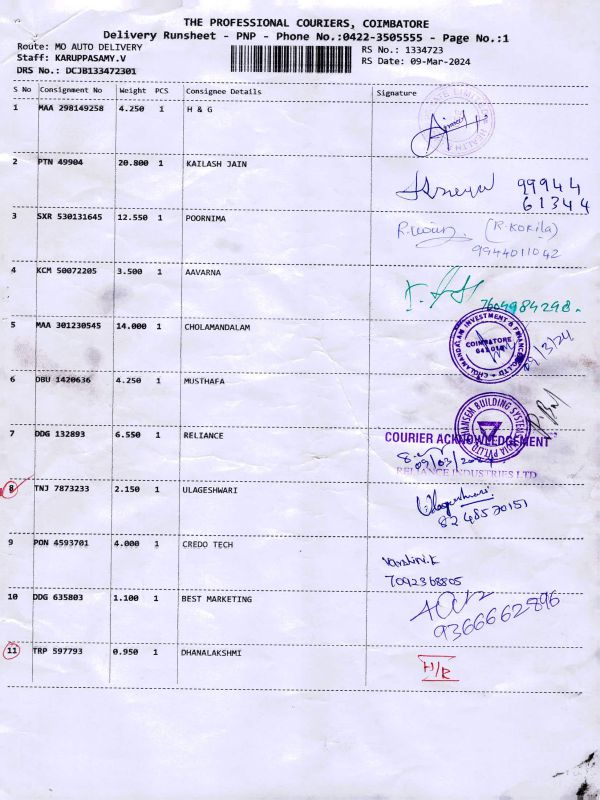 THE PROFESSIONAL COURIERS, COIMBATORE
Delivery Runsheet - PNP - Phone No.:0422-3505555 - Page No.:1
Route: MO AUTO DELIVERY
RS No.: 1334723
Staff: KARUPPASAMY.V
RS Date: 09-Mar-2024
DRS No.: DCJB133472301
S No Consignment No Weight PCS Consignee Details Signature
1 MAA 298149258 4.250 1 H & G
2 PTN 49904 20.800 1 KAILASH JAIN
99944
61344
3 SXR 530131645 12.550 1 POORNIMA
(R.KOKILA)
9944011042
4 KCM 50072205 3.500 1 AAVARNA
7604984298.
5 MAA 301230545 14.000 1 CHOLAMANDALAM
CHOLAMANDALAM INVESTMENT & FINANCE
COIMBATORE
09/3/24
6 DBU 1420636 4.250 1 MUSTHAFA
BUILDING SYSTEMS
7 DDG 132893 6.550 1 RELIANCE
COURIER ACKNOWLEDGEMENT
RELIANCE INDUSTRIES LTD
8 TNJ 7873233 2.150 1 ULAGESHWARI
Ulageshwari
8248520151
9 PON 4593701 4.000 1 CREDO TECH
Varshini.K
7092368805
10 DDG 635803 1.100 1 BEST MARKETING
9366662896
11 TRP 597793 0.950 1 DHANALAKSHMI